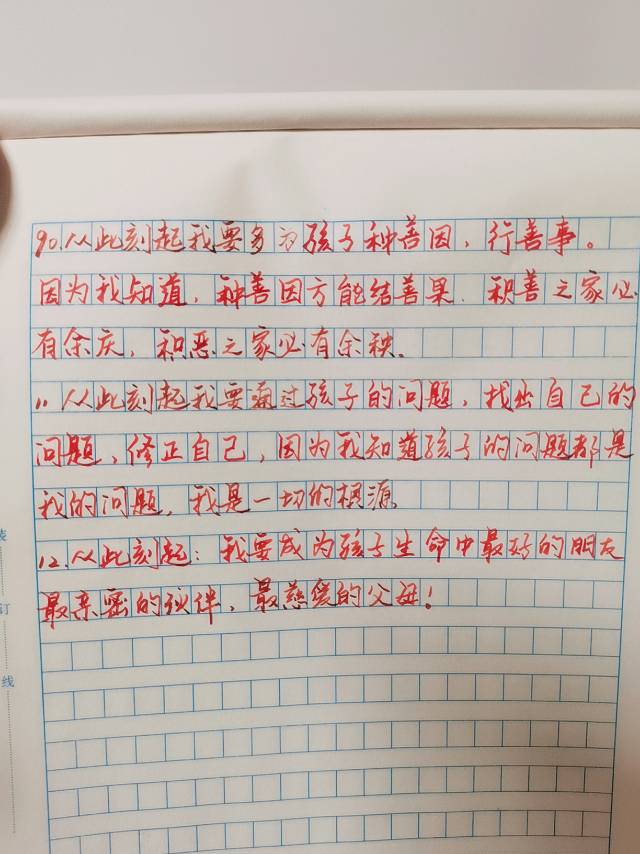 90.从此刻起我要多为孩子种善因，行善事。
因为我知道，种善因方能结善果．积善之家必
有余庆，积恶之家必有余秧。
11 从此刻起我要通过孩子的问题，找出自己的
问题，修正自己，因为我知道孩子的问题都是
我的问题，我是一切的根源。
12.从此刻起：我要成为孩子生命中最好的朋友
最亲密的伙伴，最慈爱的父母！
装
订
线